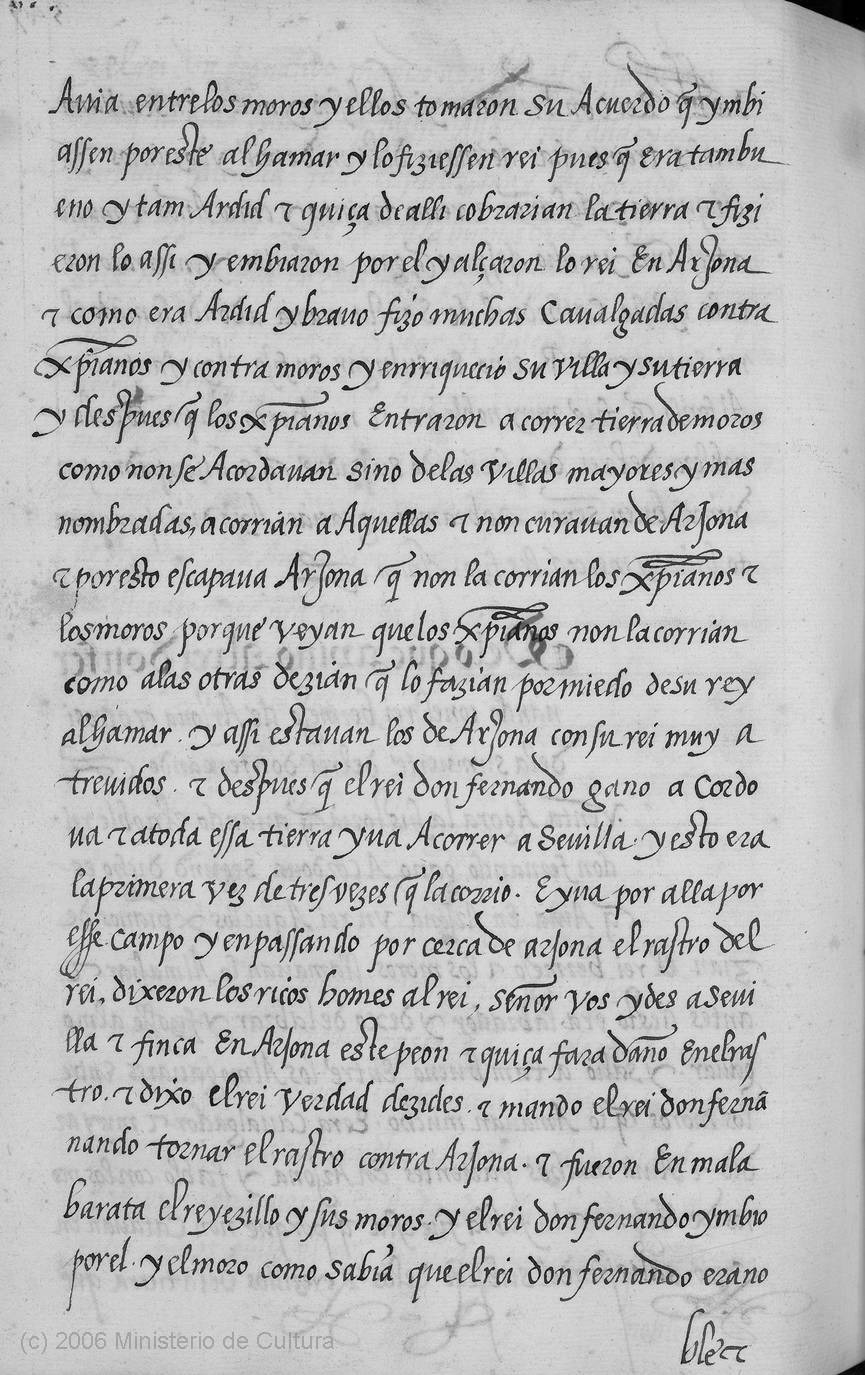 Auia entrelos moros y ellos tomaron su Acuerdo q̃ ymbi
assen poreste alhamar y lo fiziessen rei pues q̃ era tambu
eno y tam Ardid ⁊ quiça de alli cobrarian la tierra ⁊ fizi
eron lo assi y embiaron por el y alçaron lo rei En Arjona
⁊ como era Ardid y brauo fizo muchas Caualgadas contra
xp̃ianos y contra moros y enrriquecio su villa y su tierra
y despues q̃ los xp̃ianos Entraron a correr tierra de moros
como non se Acordauan sino delas villas mayores y mas
nombradas, acorrian a Aquellas ⁊ non curauan de Arjona
⁊ poresto escapaua Arjona q̃ non la corrian los xp̃ianos ⁊
los moros porque veyan que los xp̃ianos non la corrian
como alas otras dezian q̃ lo fazian por miedo desu rey
alhamar. y assi estauan los de Arjona con su rei muy a
treuidos. ⁊ despues q̃ el rei don fernando gano a Cordo
ua ⁊ atoda essa tierra yua Acorrer a Sevilla. y esto era
laprimera vez de tres vezes q̃ la corrio. E yua por alla por
esse campo y en passando por cerca de arjona el rastro del
rei, dixeron los ricos homes al rei, señor vos ydes a Sevi
lla ⁊ finca En Arjona este peon ⁊ quiça fara daño Enelras
tro. ⁊ dixo el rei verdad dezides. ⁊ mando el rei don fernã
nando tornar el rastro contra Arjona. ⁊ fueron En mala
barata el reyezillo y sus moros. y el rei don fernando ymbio
por el. y el moro como sabia que el rei don fernando era no
ble ⁊
(c) 2006 Ministerio de Cultura